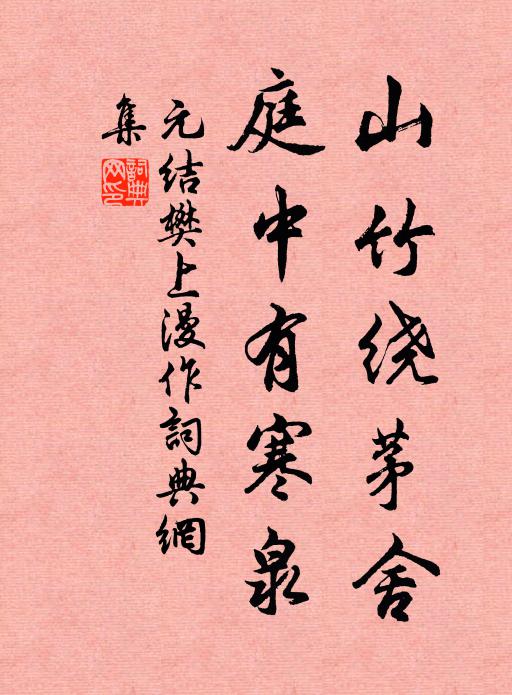 山竹绕茅舍
庭中有寒泉
元结樊上漫作詞典網
集
詞典
网印